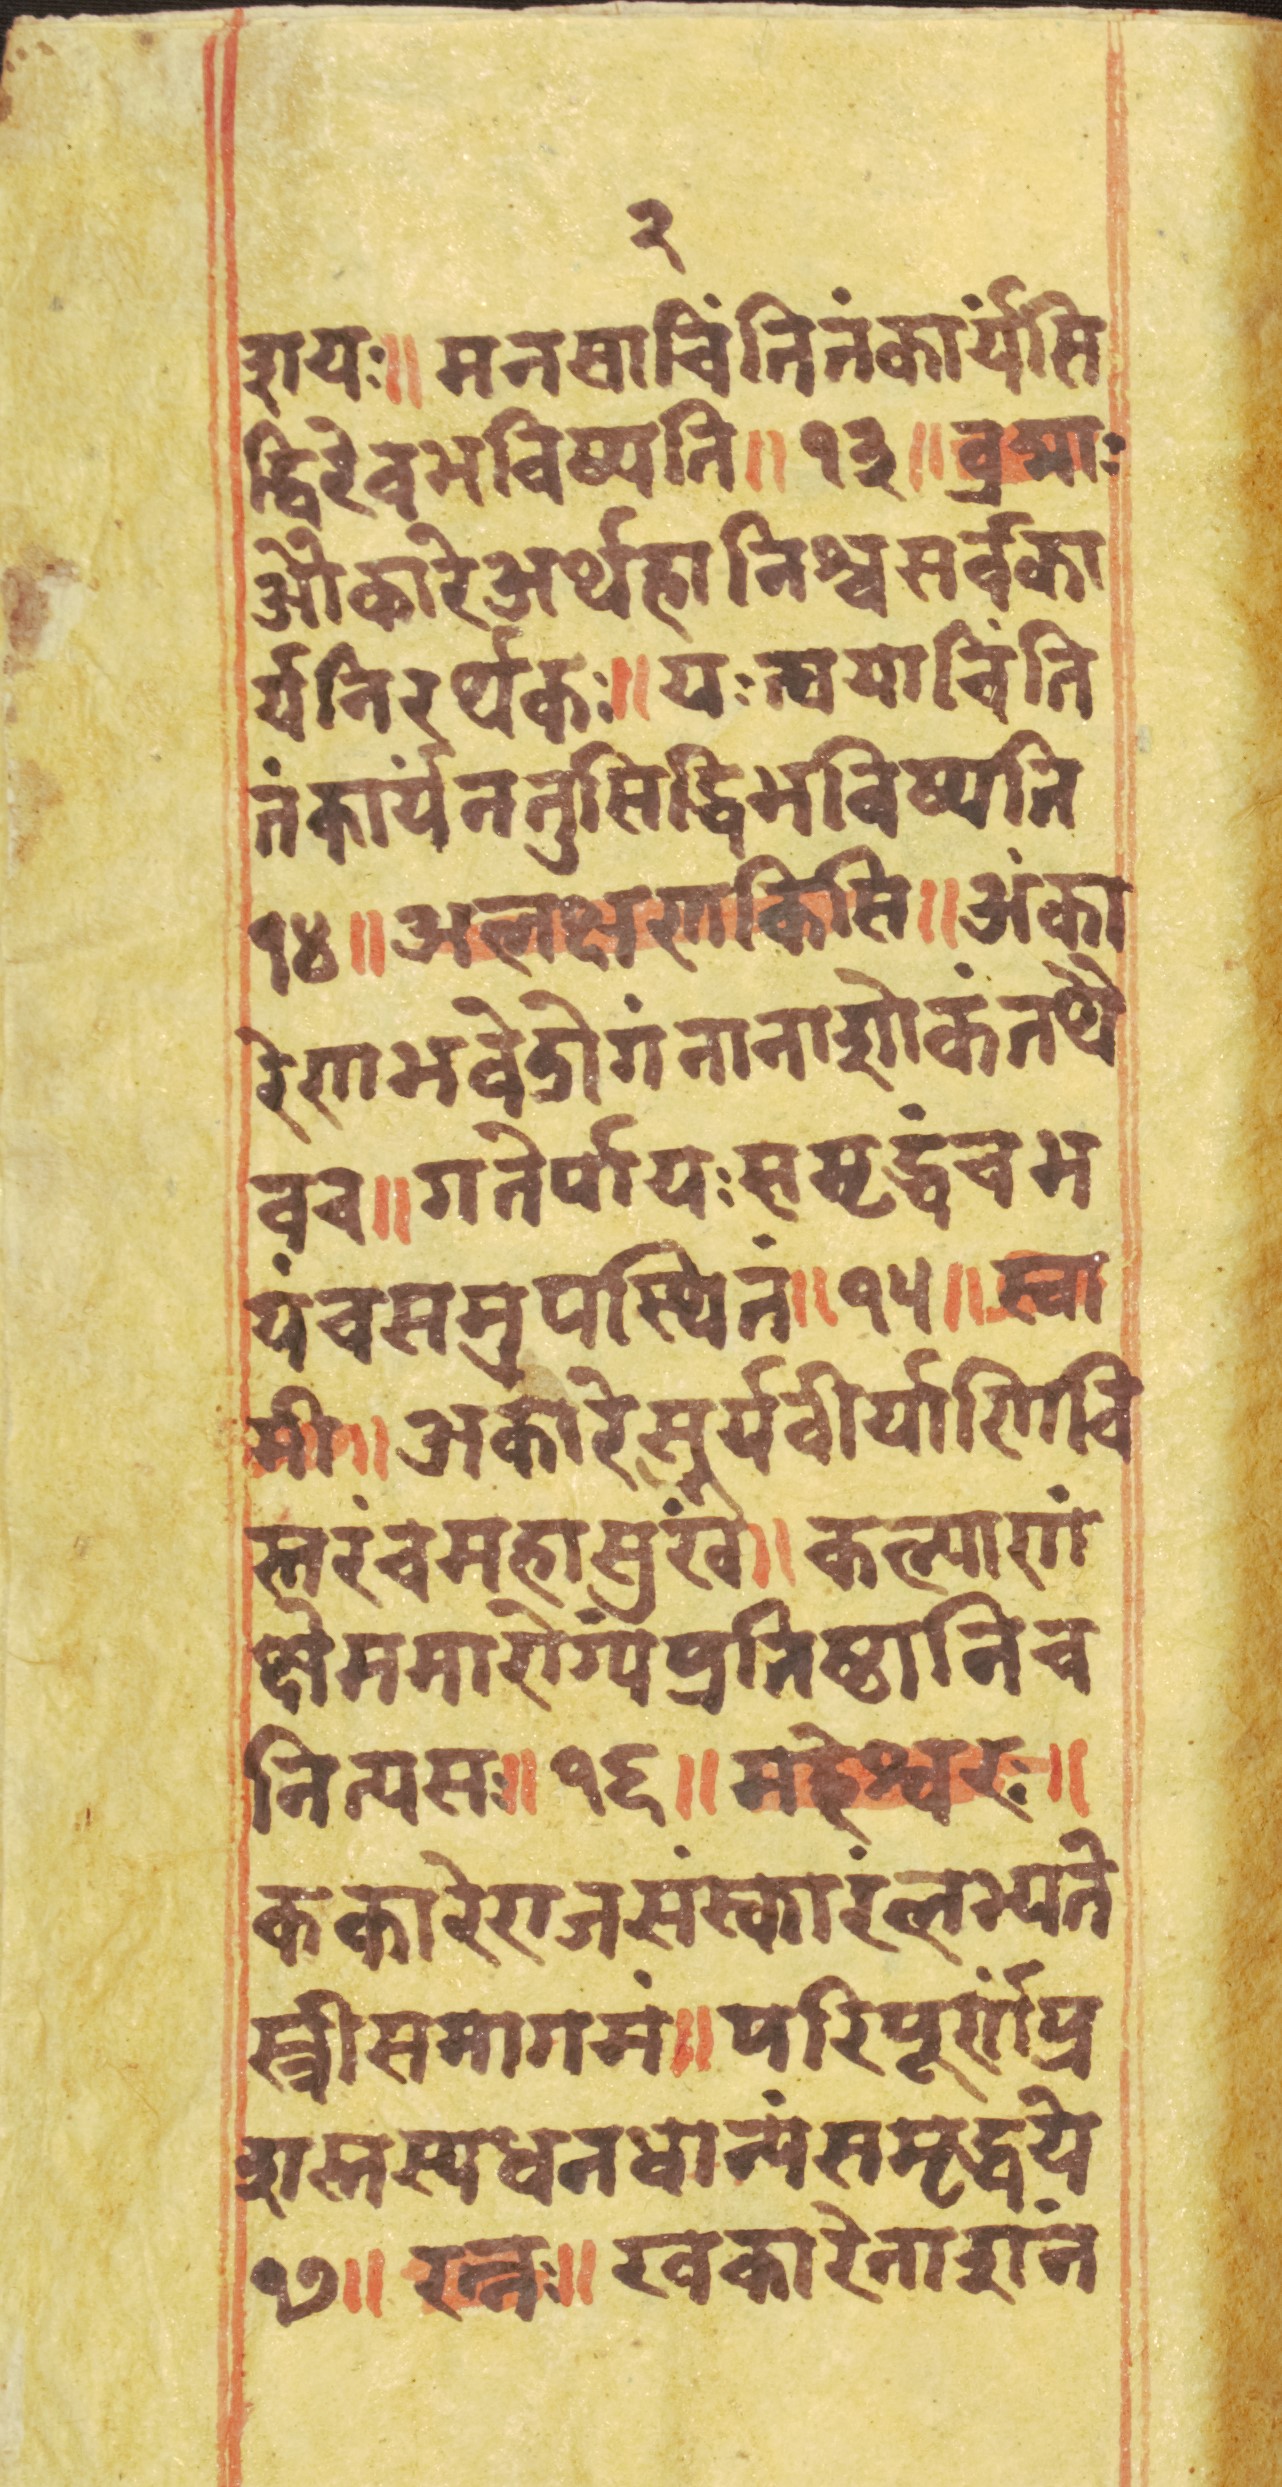 २
शयः॥ मनसाचिंतितंकार्यंसि
द्धिरेवभविष्यति॥१३॥ब्रह्माः
औकारेअर्थहानिश्चसर्वका
र्यनिरर्थकः॥यःत्वयाचिंति
तंकार्यंनतुसिद्धिभविष्यति
१४॥अलक्षणाकिसि॥अंका
रेणभवेद्रोगंनानाशोकंतथै
वच॥गतेर्पायःसमृद्धंचभ
यंचसमुपस्थितं॥१५॥स्वा
मी॥अकारेसुर्यवीर्याणिवि
स्तरंचमहासुखं॥कल्याणं
क्षेममारोग्यंप्रतिष्ठानिच
नित्यसः॥१६॥महेश्वरः॥
ककारेराजसंस्कारंलभ्यते
स्त्रीसमागमं॥परिपूर्णंप्र
शस्तस्यधनधान्यंसमृद्धये
१७॥रत्नः॥खकारेनाशनं